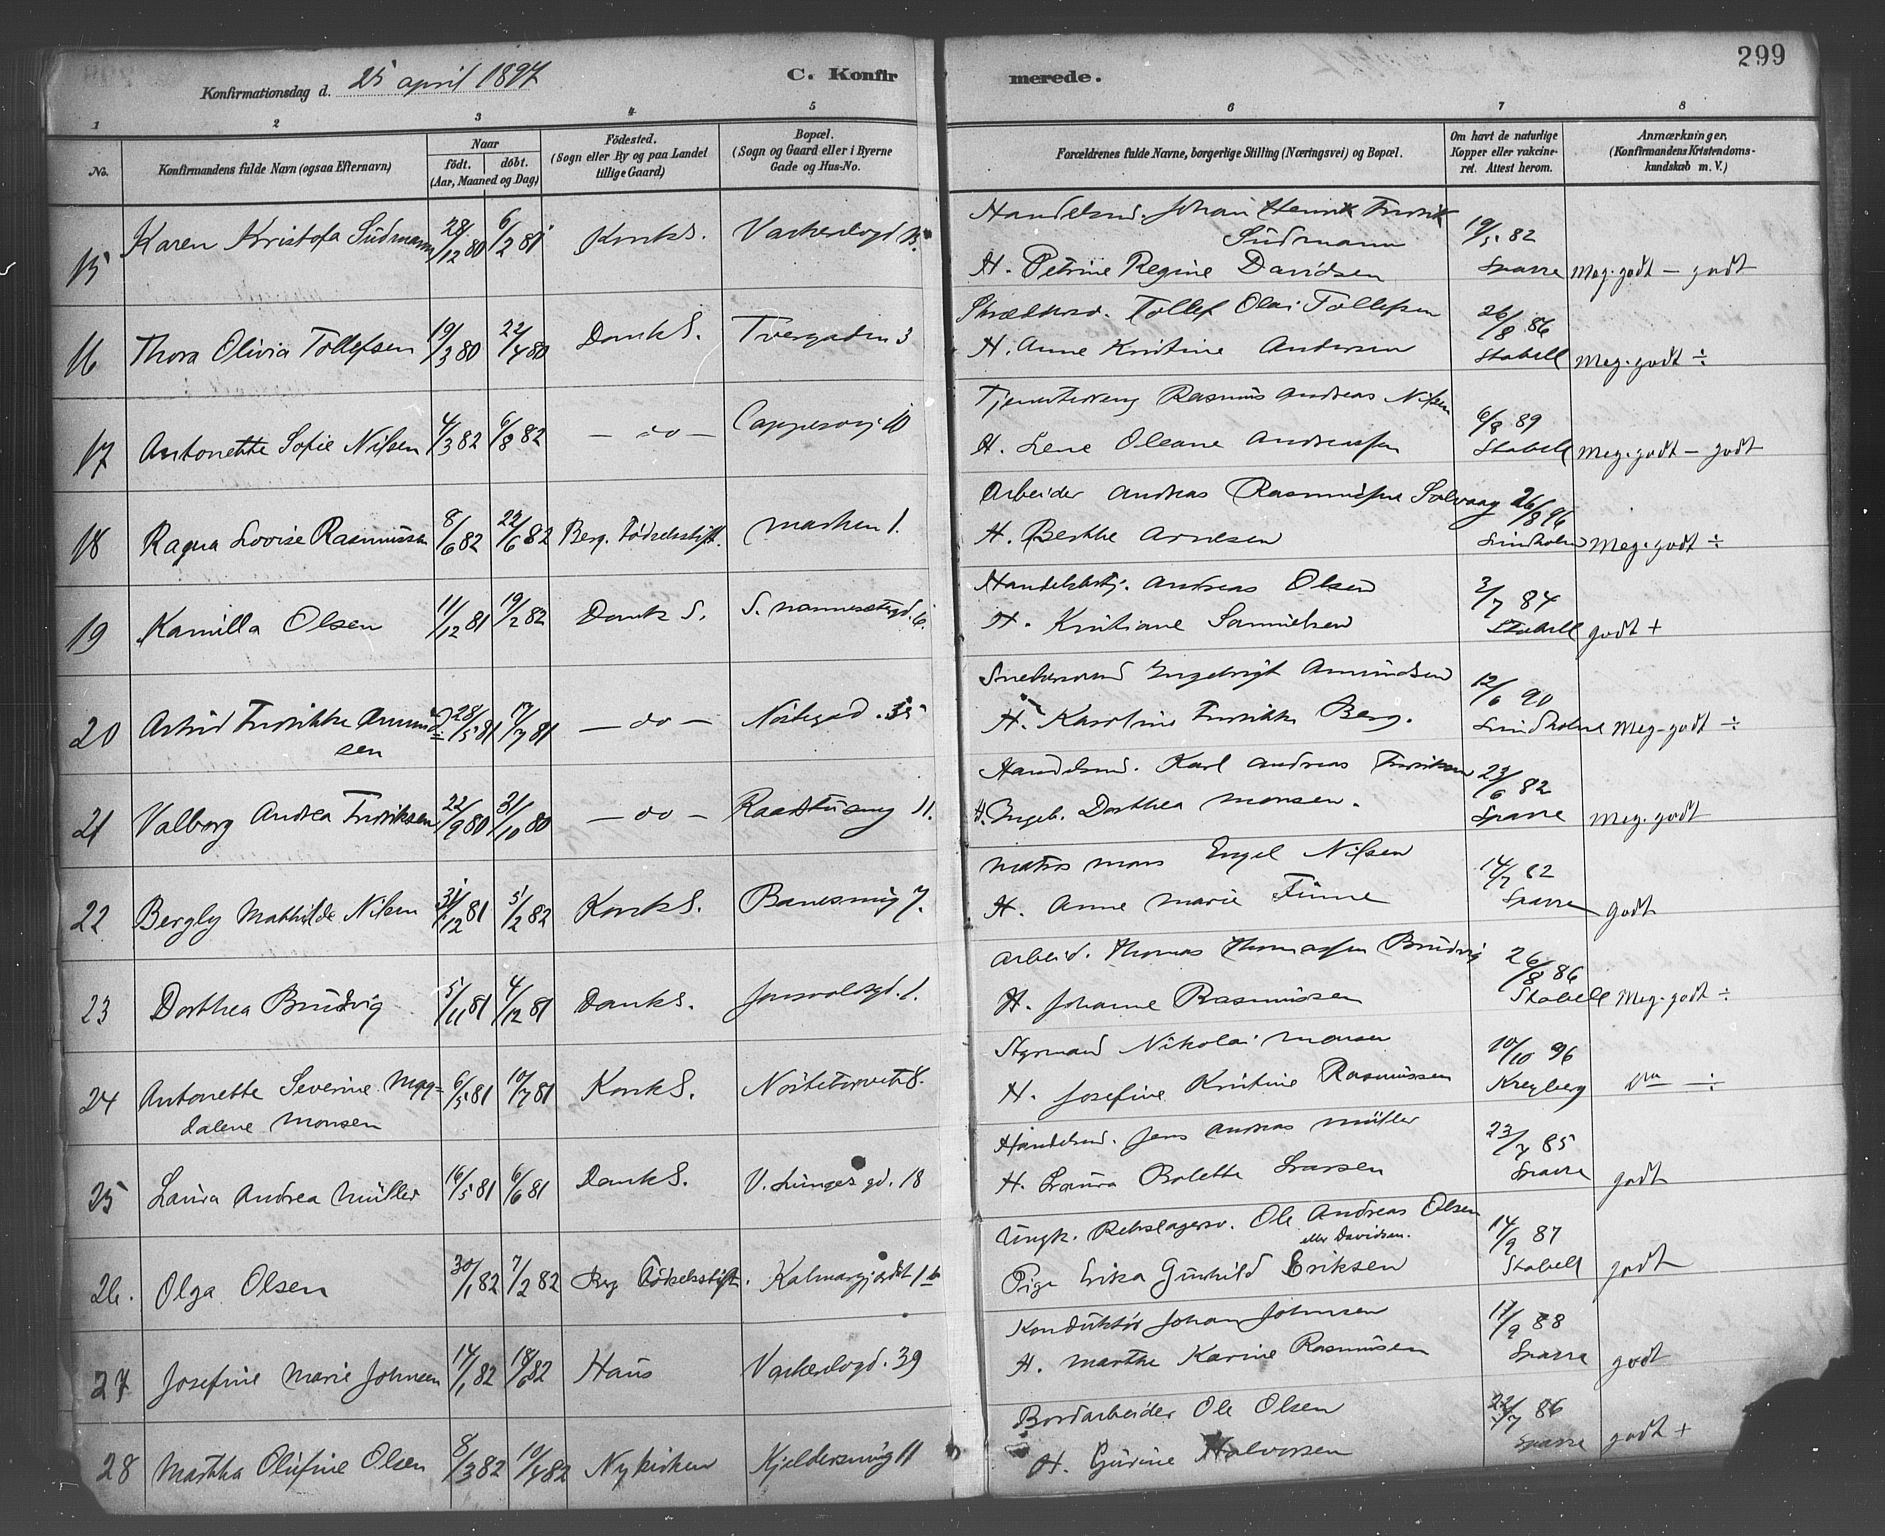 299
Konfirmationsdag d. 25 april 1897
C. Konfirmerede.
1 2 3 4 5 6 7 8
No.
Konfirmandens fulde Navn (ogsaa Efternavn)
Naar
födt. döbt.
(Aar, Maaned og Dag)
Födested.
(Sogn eller By og paa Landet
tillige Gaard)
Bopæl.
(Sogn og Gaard eller i Byerne
Gade og Hus-No.
Forældrenes fulde Navne, borgerlige Stilling (Næringsvei) og Bopæl.
Om havt de naturlige
Kopper eller vakcine-
ret. Attest herom.
Anmærkninger,
(Konfirmandens Kristendoms-
kundskab m. V.)
15 Karen Kristofa Südmann 28/12 80 6/2 81 Korsk. 
Handelsmd. Johan Henrik Fredrik
Südmann
H. Petrine Regine Davidsen
19/5 82
Sparre Meg. godt – godt
16 Thora Olivia Tollefsen 19/3 80 22/4 80 Domk S. Tvergaden 3
Tollef Olai Tollefsen
H. Anne Kristine Andersen
26/8 86
Stabell Meg. godt ÷
17 Antonette Sofie Nilsen 4/3 82 6/8 82 — do — 10
Rasmus Andreas Nilsen
H. Lene Oleane Andreassen
6/8 89
Stabell Meg. godt – godt
18 Ragna Lovise Rasmussen 8/6 82 22/6 82 Berg. Födselsstift. Marken 1.
Arbeider Andreas Rasmussen Solvaag
H. Berthe Arnesen
26/8 96
Lindholm Meg. godt ÷
19 Kamilla Olsen 11/12 81 19/2 82 Domk S. 6.
Andreas Olsen
H. Kristiane Samuelsen
3/7 84
Stabell godt +
20 Astrid Fredrikke Amund=
sen 28/5 81 17/7 81 — do — Nöstegd. 35
Snekkersvend Ingebrigt Amundsen
H. Karoline Fredrikke Berg.
12/6 90
Lindholm Meg. godt ÷
21 Valborg Andrea Fredriksen 22/9 80 31/10 80 — do — Raadstusmg 11.
Handelsmd. Karl Andreas Fredriksen
H. Ingeb. Dorthea Monsen.
23/6 82
Sparre Meg. godt
22 Mathilde Nilsen 31/12 81 5/2 82 Korsk S. 7.
Matros Mons Engel Nilsen
H. Anne Marie Finne
14/7 82
Sparre godt
23 Dorthea Brudvig 5/11 81 4/12 81 Domk S. 1.
Arbeid. Thomas Thomassen Brudvig
H. Johanne Rasmussen
26/8 86
Stabell Meg. godt ÷
24 Antonette Severine Mag=
dalene Monsen 6/5 81 10/7 81 Korsk S. Nöstetorvet 8.
Styrmand Nikolai Monsen
H. Josefine Kristine Rasmussen
10/10 96
Kreyberg ÷
25 Laura Andrea Müller 16/5 81 6/6 81 Domk S. V. Lungegd. 18
Handelsmd. Jens Andreas Müller
H. Laura Bolette Larsen
23/7 85
Sparre godt
26. Olga Olsen 30/1 82 7/2 82 Berg Födselsstift. 1 b
Ungk. Rebslagersv. Ole Andreas Olsen
eller Davidsen.
Pige Erika Gunhild Eriksen
14/9 87
Stabell godt
27 Josefine Marie Johnsen 14/1 82 18/6 82 Haus 39
Konduktör Johan Johnsen
H. Marthe Karine Rasmussen
17/9 88
Sparre godt
28 Martha Olufine Olsen 8/3 82 10/4 82 Nykirken Kjeldersmug 11
Bordarbeider Ole Olsen
H. Gurine Halvorsen
22/7 86
Sparre godt +